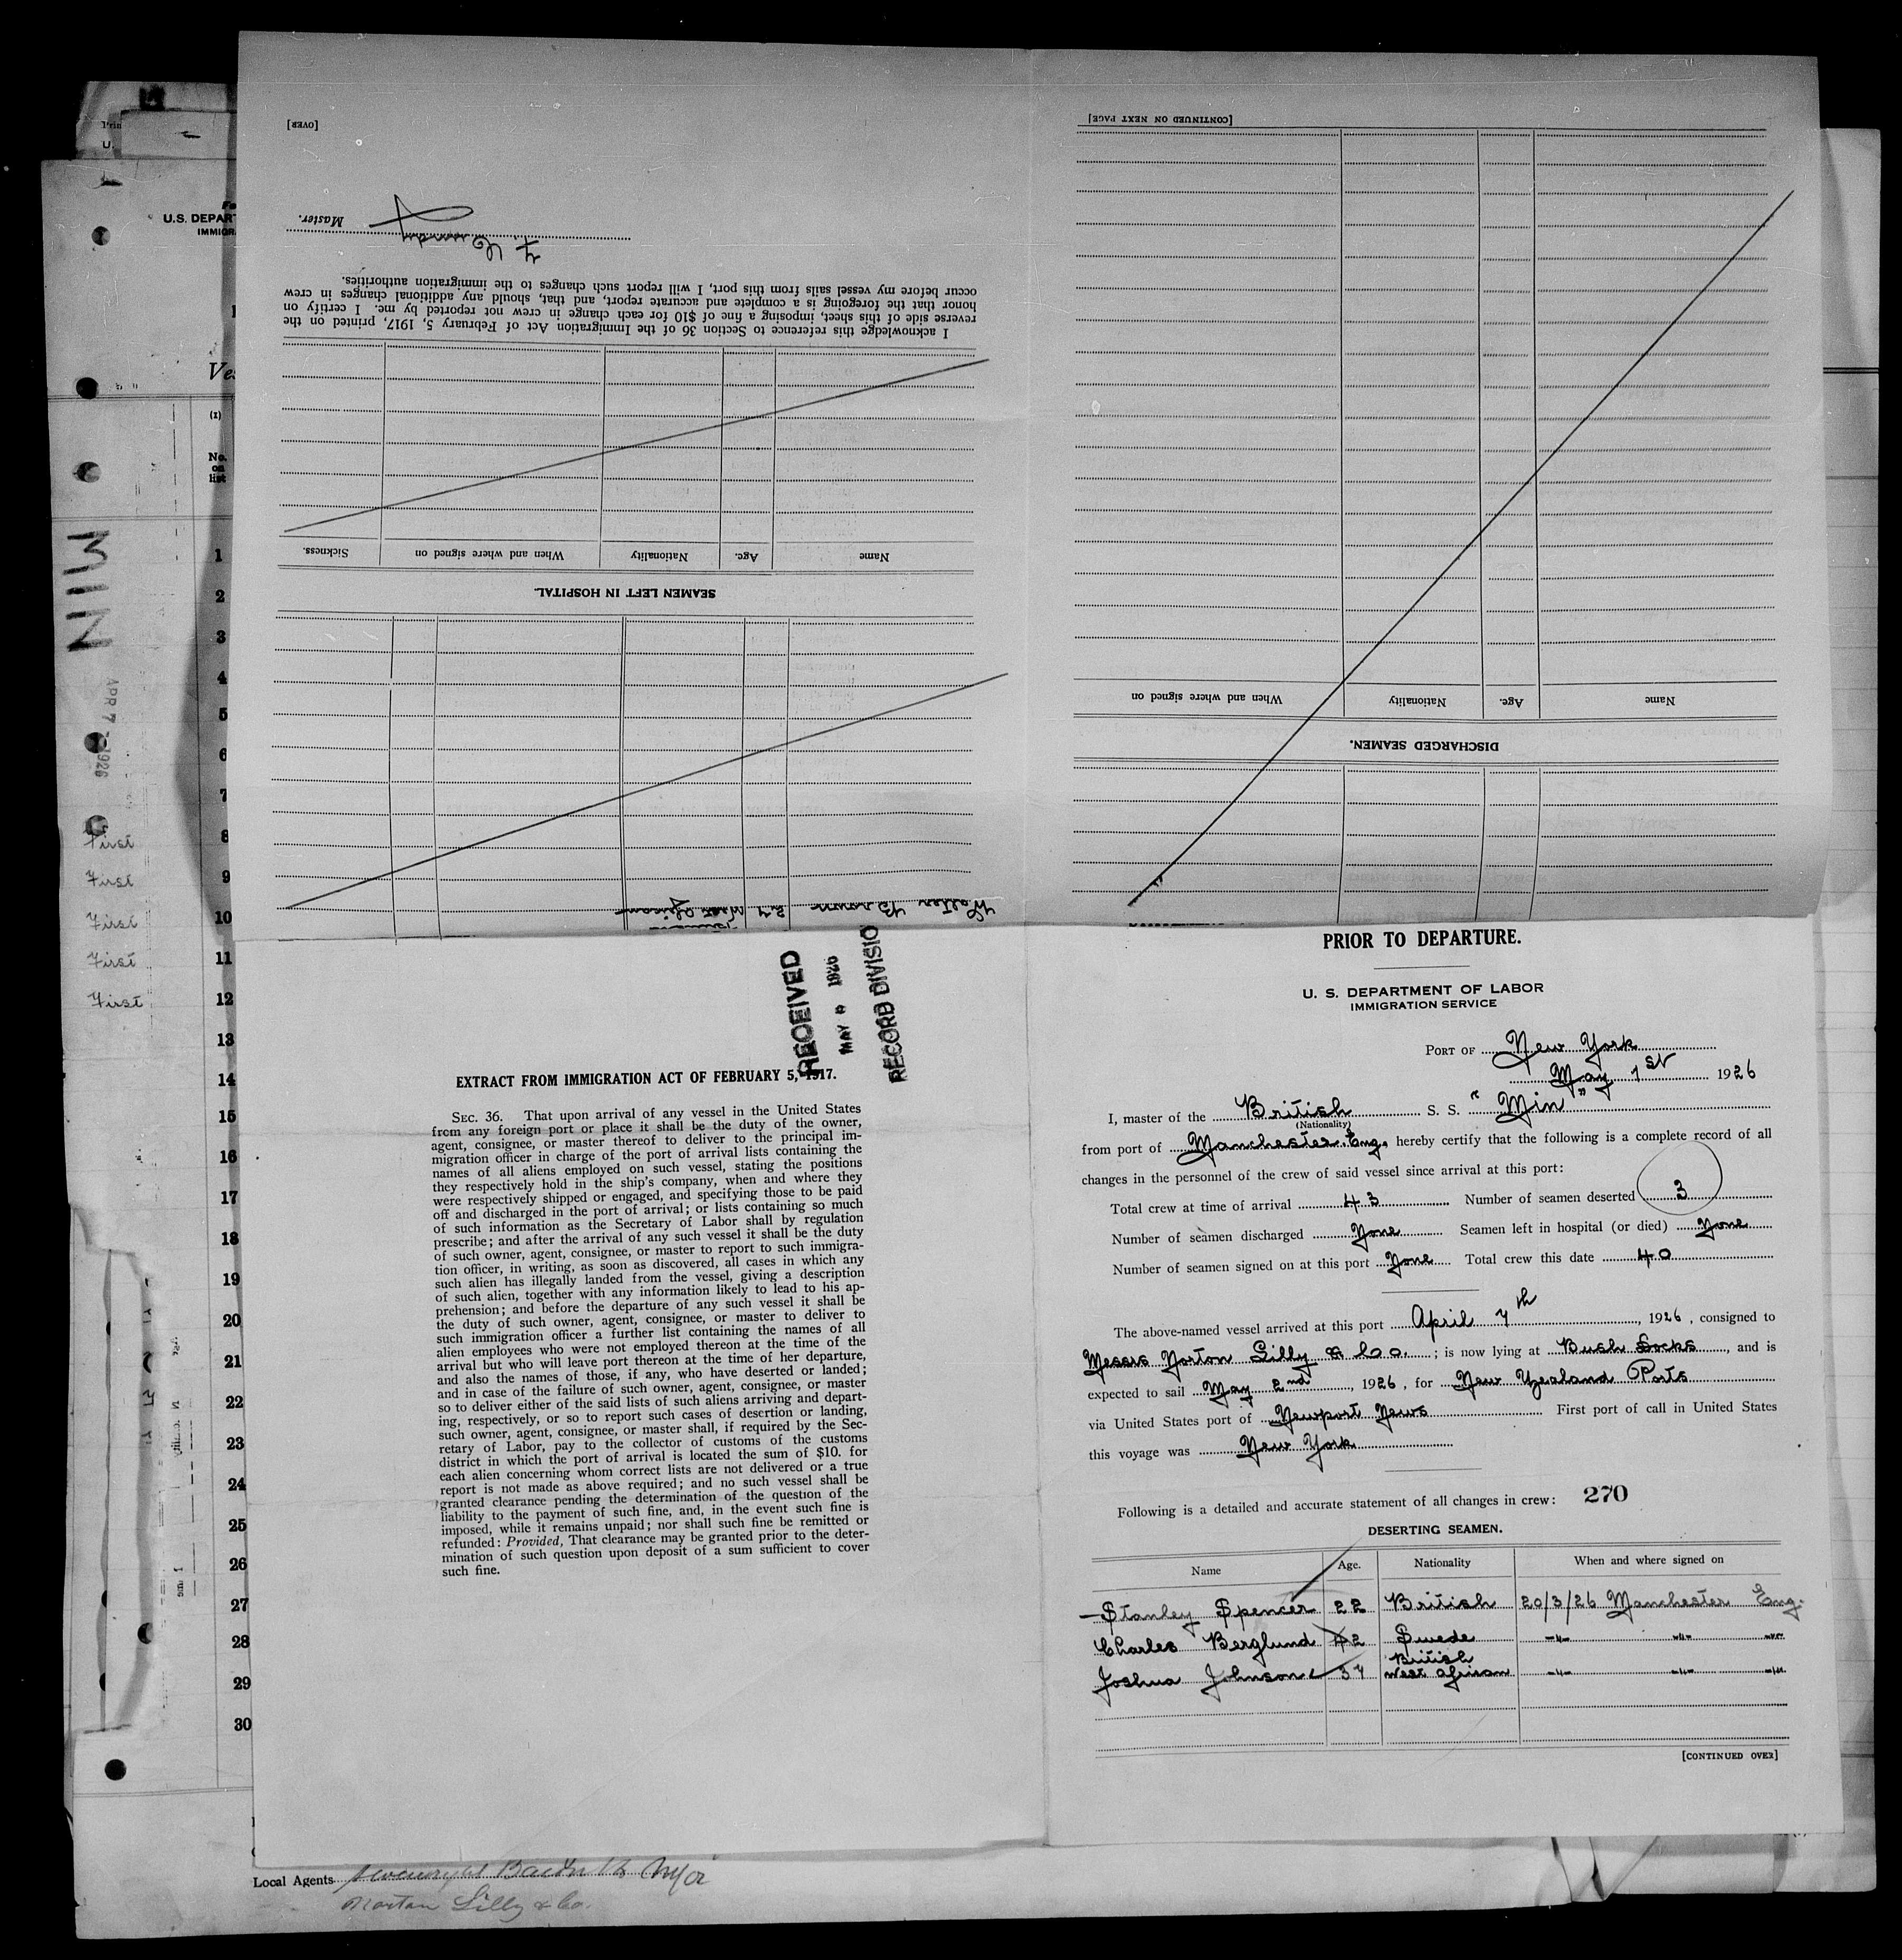 [OVER]
Master.
I acknowledge this reference to Section 36 of the Immigration Act of February 5, 1917, printed on the
reverse side of this sheet, imposing a fine of $10 for each change in crew not reported by me. I certify on
honor that the foregoing is a complete and accurate report, and that, should any additional changes in crew
occur before my vessel sails from this port, I will report such changes to the immigration authorities.
Name Age. Nationality When and where signed on Sickness.
SEAMEN LEFT IN HOSPITAL.
Walter Brown 27 West African
[CONTINUED ON NEXT PAGE]
Name Age. Nationality When and where signed on
DISCHARGED SEAMEN.
U.S. DEPART
IMMIGRA
Ves
(1)
No.
on
list
MIN
APR 7 1926
First
First
First
First
First
1
2
3
4
5
6
7
8
9
10
11
12
13
14
15
16
17
18
19
20
21
22
23
24
25
26
27
28
29
30
RECEIVED
MAY 1926
RECORD DIVISIO
EXTRACT FROM IMMIGRATION ACT OF FEBRUARY 5, 1917.
SEC. 36. That upon arrival of any vessel in the United States
from any foreign port or place it shall be the duty of the owner,
agent, consignee, or master thereof to deliver to the principal im-
migration officer in charge of the port of arrival lists containing the
names of all aliens employed on such vessel, stating the positions
they respectively hold in the ship's company, when and where they
were respectively shipped or engaged, and specifying those to be paid
off and discharged in the port of arrival; or lists containing so much
of such information as the Secretary of Labor shall by regulation
prescribe; and after the arrival of any such vessel it shall be the duty
of such owner, agent, consignee, or master to report to such immigra-
tion officer, in writing, as soon as discovered, all cases in which any
such alien has illegally landed from the vessel, giving a description
of such alien, together with any information likely to lead to his ap-
prehension; and before the departure of any such vessel it shall be
the duty of such owner, agent, consignee, or master to deliver to
such immigration officer a further list containing the names of all
alien employees who were not employed thereon at the time of the
arrival but who will leave port thereon at the time of her departure,
and also the names of those, if any, who have deserted or landed;
and in case of the failure of such owner, agent, consignee, or master
so to deliver either of the said lists of such aliens arriving and depart-
ing, respectively, or so to report such cases of desertion or landing,
such owner, agent, consignee, or master shall, if required by the Sec-
retary of Labor, pay to the collector of customs of the customs
district in which the port of arrival is located the sum of $10. for
each alien concerning whom correct lists are not delivered or a true
report is not made as above required; and no such vessel shall be
granted clearance pending the determination of the question of the
liability to the payment of such fine, and, in the event such fine is
imposed, while it remains unpaid; nor shall such fine be remitted or
refunded: Provided, That clearance may be granted prior to the deter-
mination of such question upon deposit of a sum sufficient to cover
such fine.
PRIOR TO DEPARTURE.
U. S. DEPARTMENT OF LABOR
IMMIGRATION SERVICE
PORT OF New York
May 1st 1926
I, master of the British S. S. "Min"
(Nationality)
from port of Manchester. Eng, hereby certify that the following is a complete record of all
changes in the personnel of the crew of said vessel since arrival at this port:
Total crew at time of arrival 43 Number of seamen deserted 3
Number of seamen discharged None Seamen left in hospital (or died) None
Number of seamen signed on at this port None Total crew this date 40
The above-named vessel arrived at this port April 7th, 1926, consigned to
Messrs Norton Lilly & Co. ; is now lying at Bush Docks, and is
expected to sail May 2nd, 1926, for New Zealand Ports
via United States port of Newport News First port of call in United States
this voyage was New York
Following is a detailed and accurate statement of all changes in crew: 270
DESERTING SEAMEN.
Name Age. Nationality When and where signed on
Stanley Spencer 22 British 20/3/26 Manchester Eng.
Charles Berglund Swede -"- -"- -"-
British
Joshua Johnson 37 West African -"- -"- -"-
[CONTINUED OVER]
Local Agents
Norton Lilly & Co.